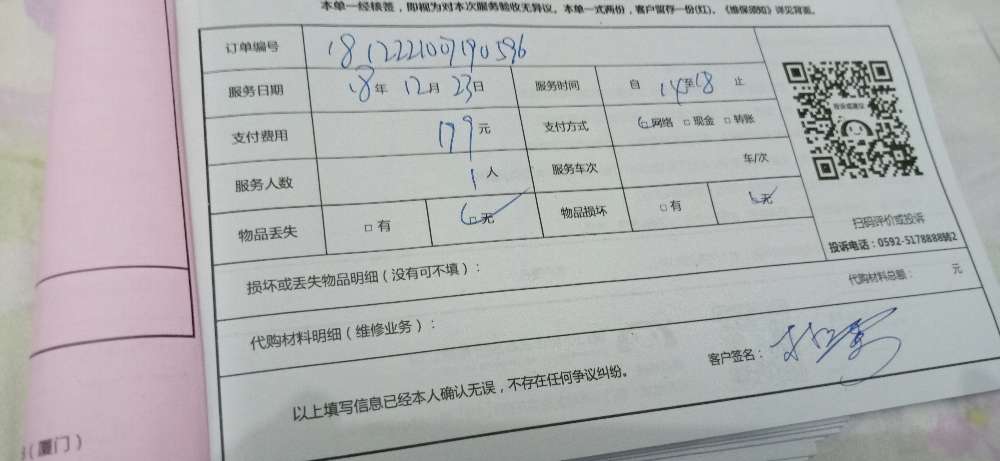 本单一经核签，即视为对本次服务验收无异议。本单一式两份，客户留存一份(红)。《维保须知》详见背面。
订单编号 181222100790596
服务日期 18年 12月 23日 服务时间 自 14至18 止
支付费用 179元 支付方式 □网络 □现金 □转账
服务人数 1人 服务车次 车/次
物品丢失 □有 □无 物品损坏 □有 □无
扫码评价或投诉
投诉电话：0592-5178888转2
损坏或丢失物品明细（没有可不填）：
代购材料总额： 元
代购材料明细（维修业务）：
客户签名：
以上填写信息已经本人确认无误，不存在任何争议纠纷。
（厦门）